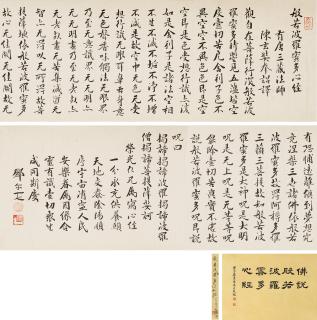 般若波羅蜜多心經
唐三藏法師
陳玄奘奉詔譯
觀自在菩薩行深般若波
羅蜜多時照見五蘊皆空
度壹切苦厄舍利子色不
異空空不異色色即是空
空即是色受想行識亦復
如是舍利子是諸法空相
不生不滅不垢不淨不增
不減是故空中无色无受
想行識无眼耳鼻舌身意
无色聲香味觸法无眼界
乃至无意識界无无明亦
无无明盡乃至无老死亦
无老死盡无苦集滅道无
智亦无得以无所得故菩
提薩埵依般若波羅蜜多
故心无罣礙无罣礙故无
有恐怖遠離顛倒夢想究
竟涅槃三世諸佛依般若
波羅蜜多故得阿耨多羅
三藐三菩提故知般若波
羅蜜多是大神咒是大明
咒是无上咒是无等等咒
能除壹切苦真實不虛故
說般若波羅蜜多咒即說
咒曰
揭諦揭諦波羅揭諦波羅
僧揭諦菩提娑婆訶
寫心經
永充供養願
天地交泰陰陽順
序宇宙清寧人民
安樂眷属
靈有識壹切衆生
咸同斯慶
鄧尔疋
佛說
般若
波羅
蜜多
心經